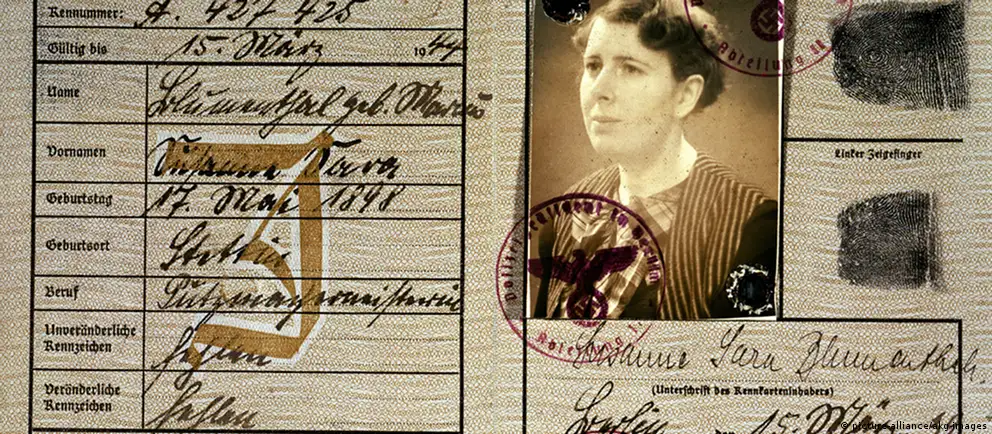 Kennnummer: A. 427 425
Gültig bis 15. März 1944
Name Blumenthal geb. Markus
Vornamen Susanna Sara
Geburtstag 17. Mai 1898
Geburtsort Stettin
Beruf Putzmachermeisterin
Unveränderliche
Kennzeichen fehlen
Veränderliche
Kennzeichen fehlen
J
Abteilung II
Polizeipräsident in Berlin
Abteilung II
Linker Zeigefinger
Susanne Sara Blumenthal
(Unterschrift des Kennkarteninhabers)
Berlin, den 15. Mä
© picture-alliance/akg-images